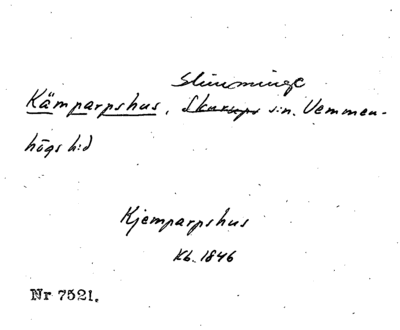 Slimminge
Kämparpshus, Skurups s:n. Vemmen-
högs h:d
Kjemparpshus
Kb. 1846
Nr 7521.